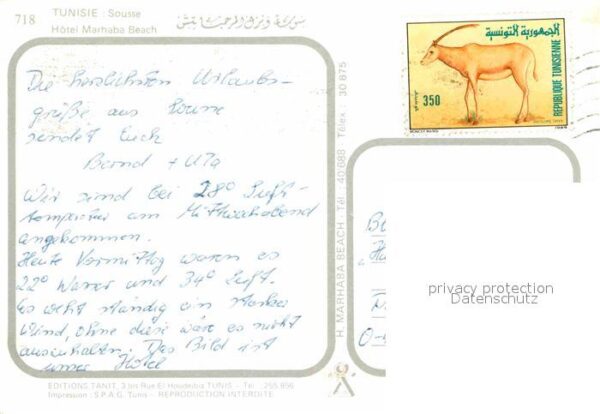 718
TUNISIE : Sousse
Hôtel Marhaba Beach
Die herzlichsten Urlaubs-
grüße aus
sendet Euch
Bernd + Uta
Wir sind bei 28° Luft-
temperatur am Mittwochabend
angekommen.
Heute Vormittag waren es
22° Wasser und 34° Luft.
Es weht ständig ein starker
Wind, ohne diese wäre es nicht
auszuhalten. Das Bild ist
unser Hotel
EDITIONS TANIT, 3 bis Rue El Houdeibia TUNIS - Tél : 255 856
Impression : S.P.A.G. Tunis - REPRODUCTION INTERDITE
H. MARHABA BEACH - Tél : 40/688 - Télex 30 875
الجمهورية التونسية
REPUBLIQUE TUNISIENNE
350
privacy protection
Datenschutz